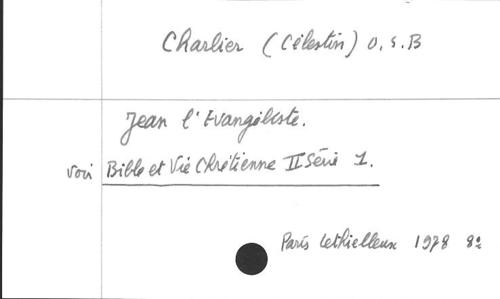 Charlier (Célestin) O.S.B
Jean l'Evangéliste.
voir Bible et Vie Chrétienne II Série 1.
Paris Lethielleux 1978 8º